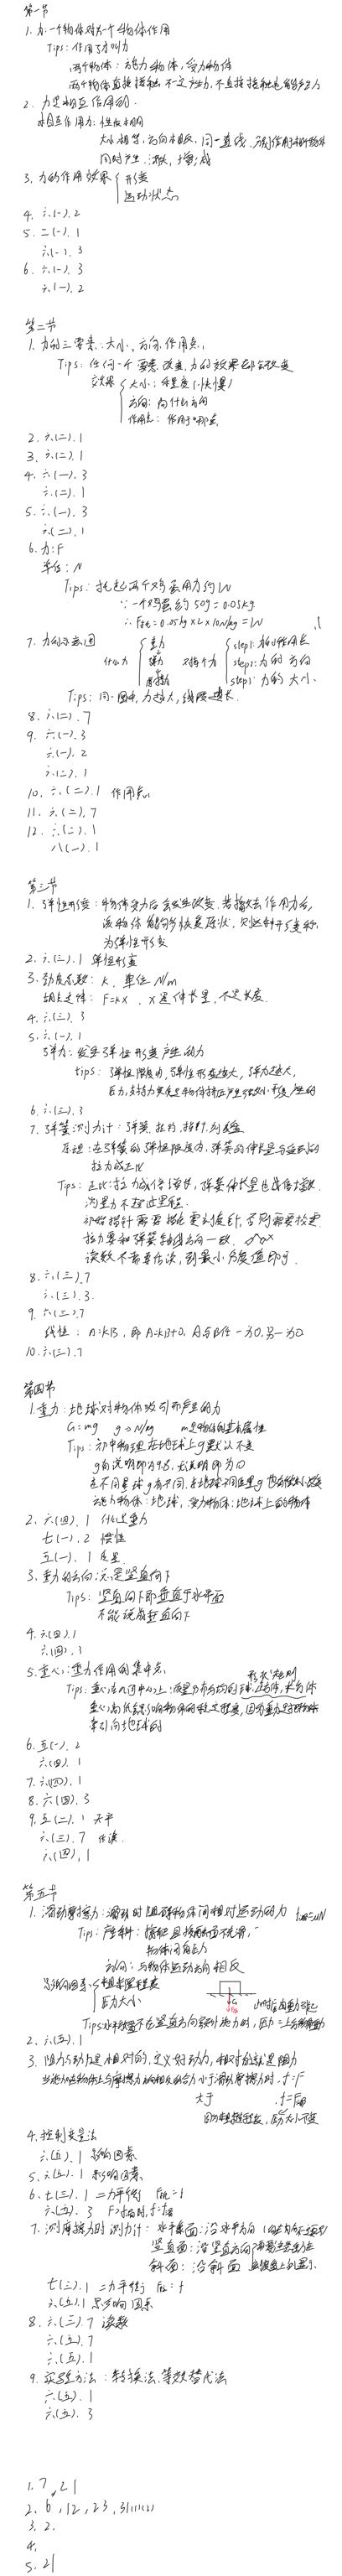 第一节
1. 力:一个物体对另一个物体作用
Tips:作用才叫力
两个物体:施力物体,受力物体
两个物体直接接触,不一定产生力,不直接接触也能够产生力
2. 力是相互作用的.
相互作用力:性质相同
大小相等,方向相反,同一直线,分别作用于两个物体
同时产生,消失,增,减
3. 力的作用效果 形变
运动状态
4. 六(一).2
5. 二(一).1
六(一).3
6. 六(一).3
六(一).2
第二节
1. 力的三要素:大小、方向、作用点.
Tips:任何一个要素改变,力的效果都会改变
效果 大小:程度(快慢)
方向:向什么方向
作用点:作用于哪点
2. 六(二).1
3. 六(二).1
4. 六(一).3
六(二).1
5. 六(一).3
六(二).1
6. 力:F
单位:N
Tips:托起两个鸡蛋用力约1N
∵一个鸡蛋约50g=0.05kg
∴F=0.05kg×2×10N/kg=1N
7. 力的示意图
什么力 重力 弹力 摩擦力 对每个力 step1:力的作用点
step2:力的方向
step3:力的大小
Tips:同一图中,力越大,线段越长.
8. 六(二).7
9. 六(一).3
六(一).2
六(二).1
10. 六(二).1 作用点
11. 六(二).7
12. 六(二).1
八(一).1
第三节
1. 弹性形变:物体受力后会发生改变,若撤去作用力后,
该物体能够恢复原状,则这种形变称
为弹性形变
2. 六(三).1 弹性形变
3. 劲度系数:k,单位N/m
胡克定律:F=kx,x是伸长量,不是长度.
4. 六(三).3
5. 六(一).1
弹力:发生弹性形变产生的力
tips:弹性限度内,弹性形变越大,弹力越大,
压力,支持力
6. 六(三).3
7. 弹簧测力计:弹簧,挂钩,指针,刻度盘
原理:在弹簧的弹性限度内,弹簧的伸长量与受到的
拉力成正比
Tips:正比:拉力成倍增加,弹簧伸长量也成倍增加.
测量力不超过量程.
初始指针需要指在零刻度处,否则需要校零
拉力要和弹簧轴线方向一致.
读数不需要估读,到最小分度值即可.
8. 六(三).7
六(三).3.
9. 六(三).7
线性:A=kB,即A=kB+0,A与B任一为0,另一为0
10. 六(三).7
第四节
1. 重力:地球对物体吸引而产生的力
G=mg g→N/kg m是物体的基本属性
Tip:初中物理在地球上g默认不变
g有说明即为9.8,无说明即为10
在不同星球g不同,在地球不同位置g也有微小改变
施力物体:地球,受力物体:地球上的物体
2. 六(四).1 什么是重力
七(一).2 惯性
五(一).1 质量
3. 重力的方向:总是竖直向下
Tips:竖直向下即垂直于水平面
不能说成垂直向下
4. 六(四).1
六(四).3
5. 重心:重力作用的集中点.
形状规则
Tips:重心在几何中心上:质量分布均匀的球,正方体,长方体
6. 五(一).2
六(四).1
7. 六(四).1
8. 六(四).3
9. 五(二).1 天平
六(三).7 估读
六(四).1
第五节
1. 滑动摩擦力:滑动时阻碍物体间相对运动的力
Tips:产生条件:接触且接触面不光滑,
物体间有压力
方向:与物体运动方向相反
影响因素 粗糙程度
压力大小
2. 六(五).1
3. 阻力与动力是相对的,定义好动力,相对的就是阻力
大于
4. 控制变量法
六(五).1 影响因素
5. 六(五).1 影响因素
6. 七(三).1 二力平衡
六(五).3
7. 测摩擦力时 测力计:水平桌面:沿水平方向
竖直面:沿竖直方向
斜面:沿斜面
七(三).1 二力平衡
六(五).1 影响因素
8. 六(三).7 读数
六(五).7
六(五).1
9. 实验方法:转换法,等效替代法
六(五).1
六(五).3
1. 7,21
2. 6,12,23,31(1)(2)
3. 2.
4.
5. 21